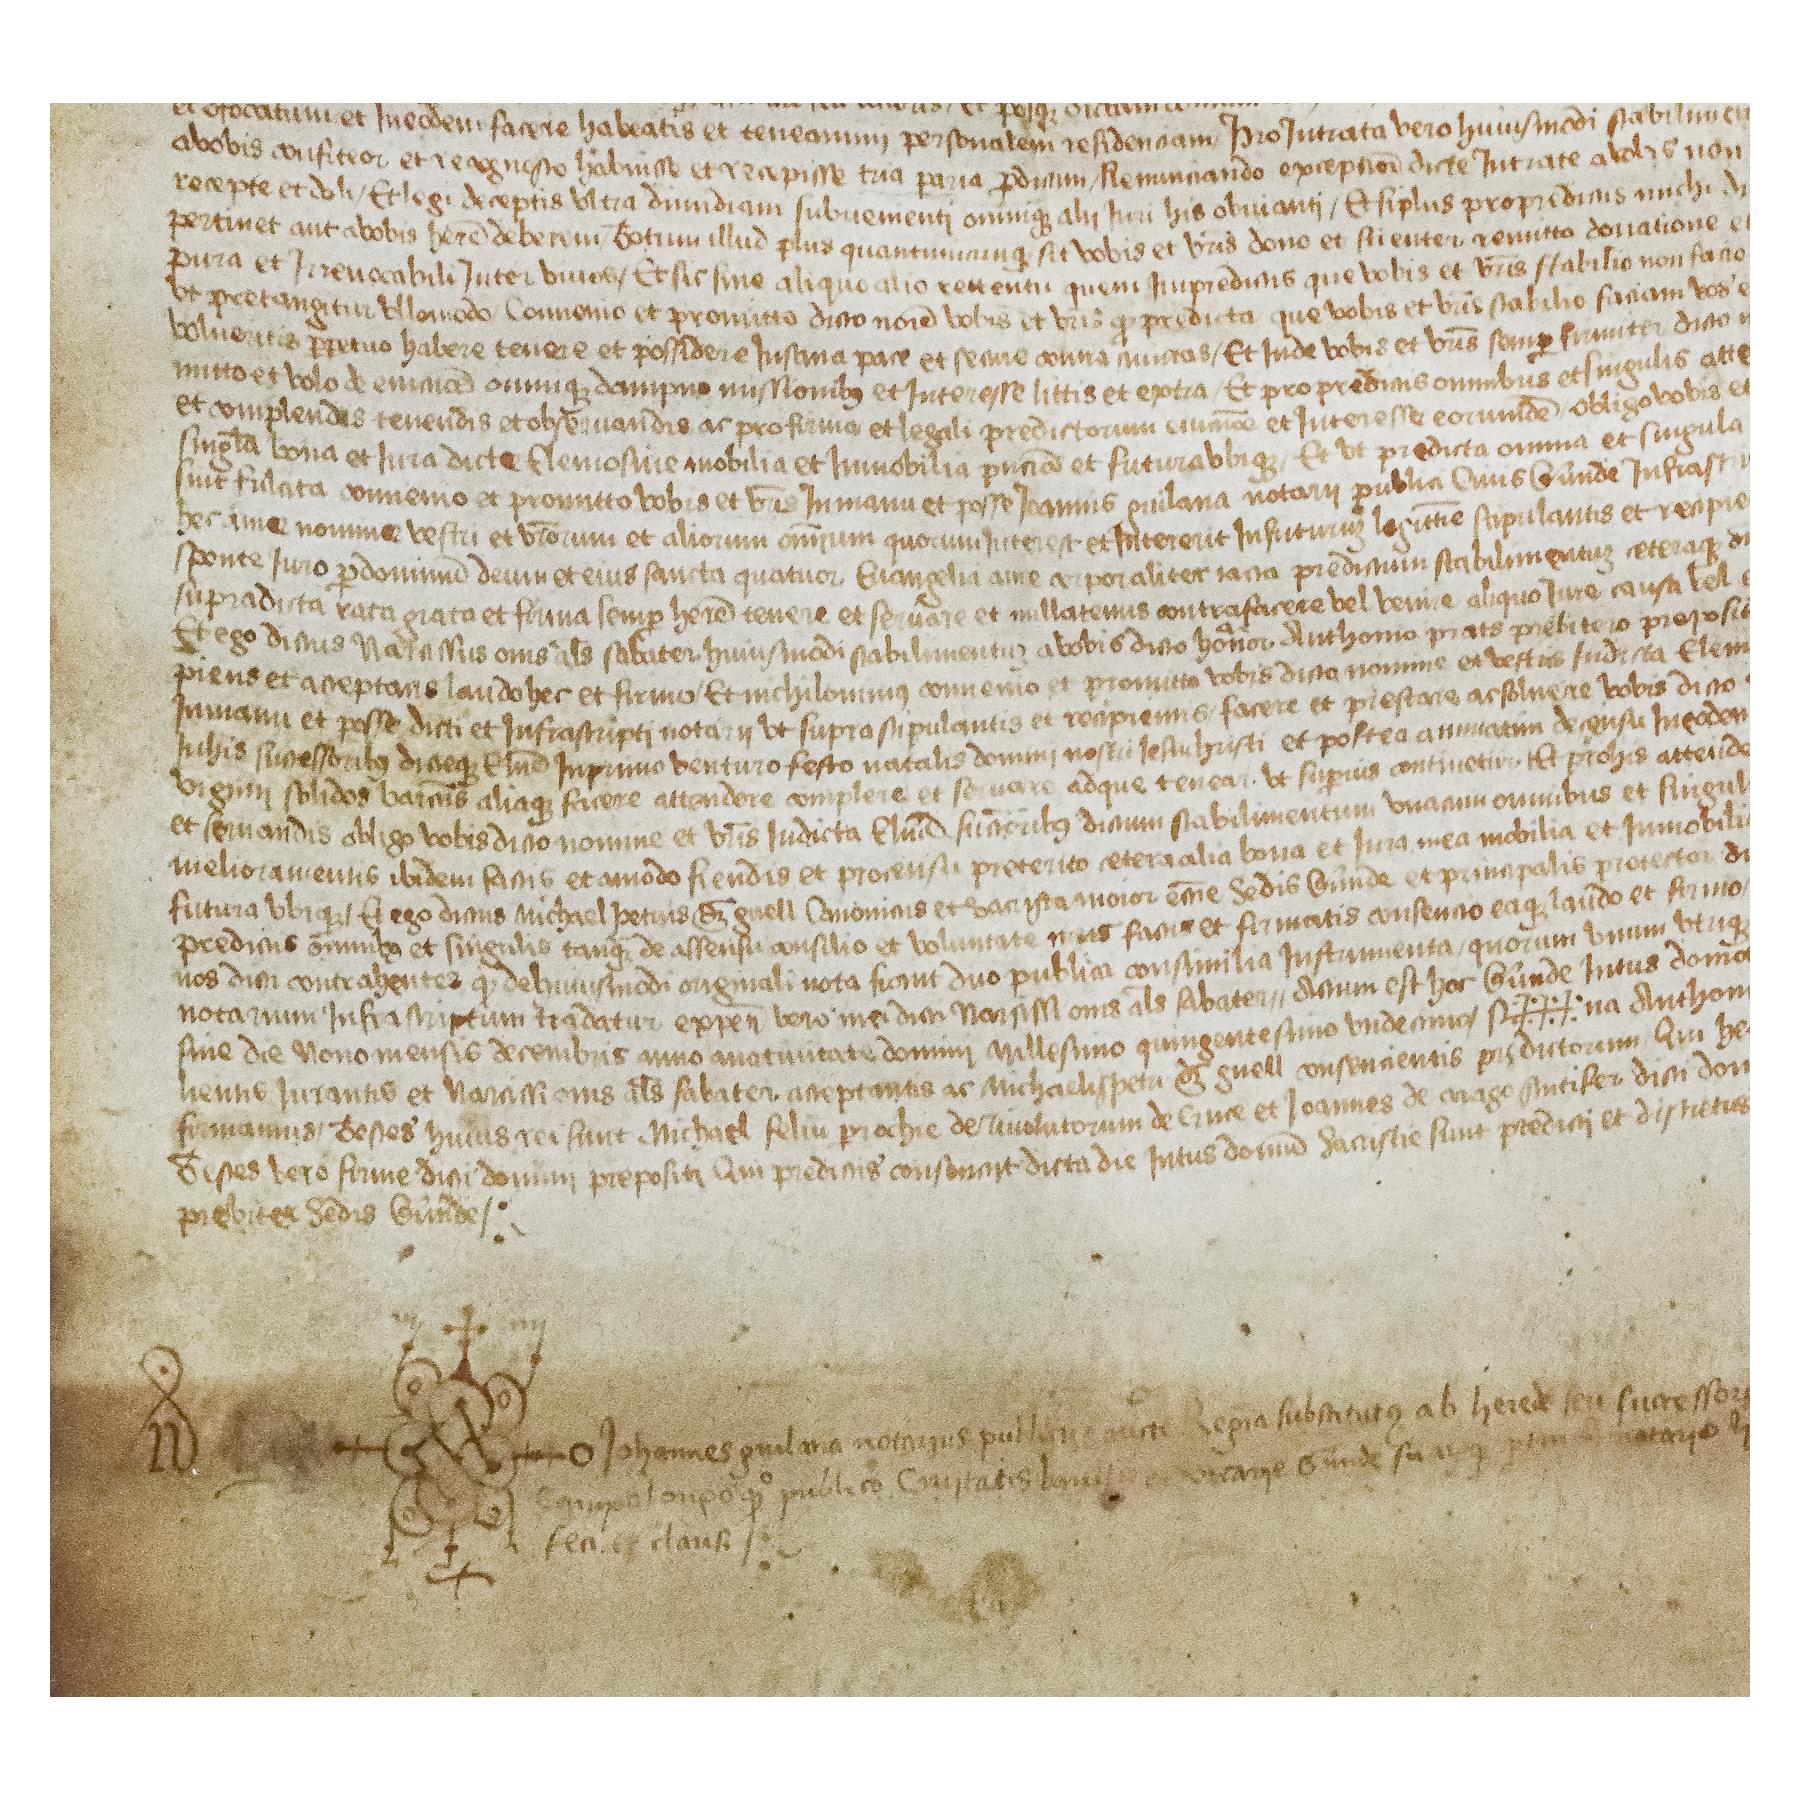 et effocatum et In eodem facere habeatis et teneamini personalem residenciam / Pro Intrata vero huiusmodi stabilimen
a vobis confiteor et recognosco habuisse et recepisse tria paria pdicum / Renunciando excepcioni dicte Intrate a vobis non
recepte et doli / Et legi deceptis ultra dimidiam subvenienti omnique alii Iuri his obvianti / Et si plus propredictis michi
pertinet aut a vobis here deberem Totum illud plus quantumcunque sit vobis et vris dono et scienter remitto donatione
pura et Irrevocabili Inter vivos / Et sic sine aliquo alio retentu quem In predictis que vobis et vris stabilio non facio
ut pretangitur ullomodo / Convenio et promitto dicto noie vobis et vris q predicta que vobis et vris stabilio faciam vos
volueritis ppetuo habere tenere et possidere In sana pace et secure contra cunctas / Et Inde vobis et vris semp firmiter dicto
mitto et volo de eviccoe omnique dampno missionibus et Interesse littis et extra / Et pro predictis omnibus et singulis
et complendis tenendis et observandis ac pro firma et legali predictorum eviccoe et Interesse eorumde obligo vobis et
singla bona et Iura dicte Elemosine mobilia et Inmobilia pncia et futura ubique / Et ut predicta omnia et singula
sint fulcita convenio et promitto vobis et vris In manu et posse Joannis guilana notarii publici Civis Gunde Infrascri
hec a me nomine vestri et vrorum et aliorum omnium quorum Interest et Intererit In futurum legittie stipulantis et recipie
sponte Iuro p dominum deum et eius sancta quatuor Evangelia a me corporaliter tacta predictum stabilimentum ceteraque
supradicta rata grata et firma semp here tenere et servare et nullatenus contrafacere vel venire aliquo Iure causa vel
Et ego dictus Narcissus oms als sabater huiusmodi stabilimentum a vobis dicto honor Anthonio prats prebitero preposit
piens et acceptans laudo hec et firmo / Et nichilominus convenio et promitto vobis dicto nomine et vestris In dicta Elem
In manu et posse dicti et Infrascripti notarii ut supra stipulantis et recipientis / facere et prestare ac solvere vobis dicto
In his successoribus dicteque Elmd In primo venturo festo natalis domini nostri Iesuchristi et postea annuatim de censu In eodem
viginti solidos barcnis aliaque facere attendere complere et servare ad que tenear ut superius continetur / Et pro his attende
et servandis obligo vobis dicto nomine et vris In dicta Elmd succoribus dictum stabilimentum unacum omnibus et singul
melioramentis ibidem factis et amodo fiendis et pro censu preterito cetera alia bona et Iura mea mobilia et Inmobili
futura ubique / Et ego dictus Michael petrus guell Canonicus et sacrista maior eccie Sedis Gunde et principalis protector
predictis omnibus et singulis tanq de assensu consilio et voluntate meis factis et firmatis consencio eaque laudo et firmo /
nos dicti contrahentes q de huiusmodi originali nota fiant duo publica consimilia Instrumenta / quorum unum utrique
notarium Infrascriptum tradatur expen vero mei dicti Narcissi oms als sabater // Actum est hoc Gunde Intus domo
sine die Nono mensis decembris anno a nativitate domini Millesimo quingentesimo undecimo / Sig+++na Anthon
lientis Iurantis et Narcissi oms als sabater acceptantis ac Michaelis petri guell consencientis predictorum / Qui hec
firmamus / Testes huius rei sunt Michael feliu prochie de Rivolutorum de Cruce et Joannes de arago
Testes vero firme dicti domini prepositi Qui predictis consencit dicta die Intus domum Sacristie sunt predicti et discretus
prebiter Sedis Gunde /
Johannes guilana notarius publicus auct Regia substitutus ab herede seu successore
Campolongo q publico Civitatis Vicarie Gunde
feci et clausi /